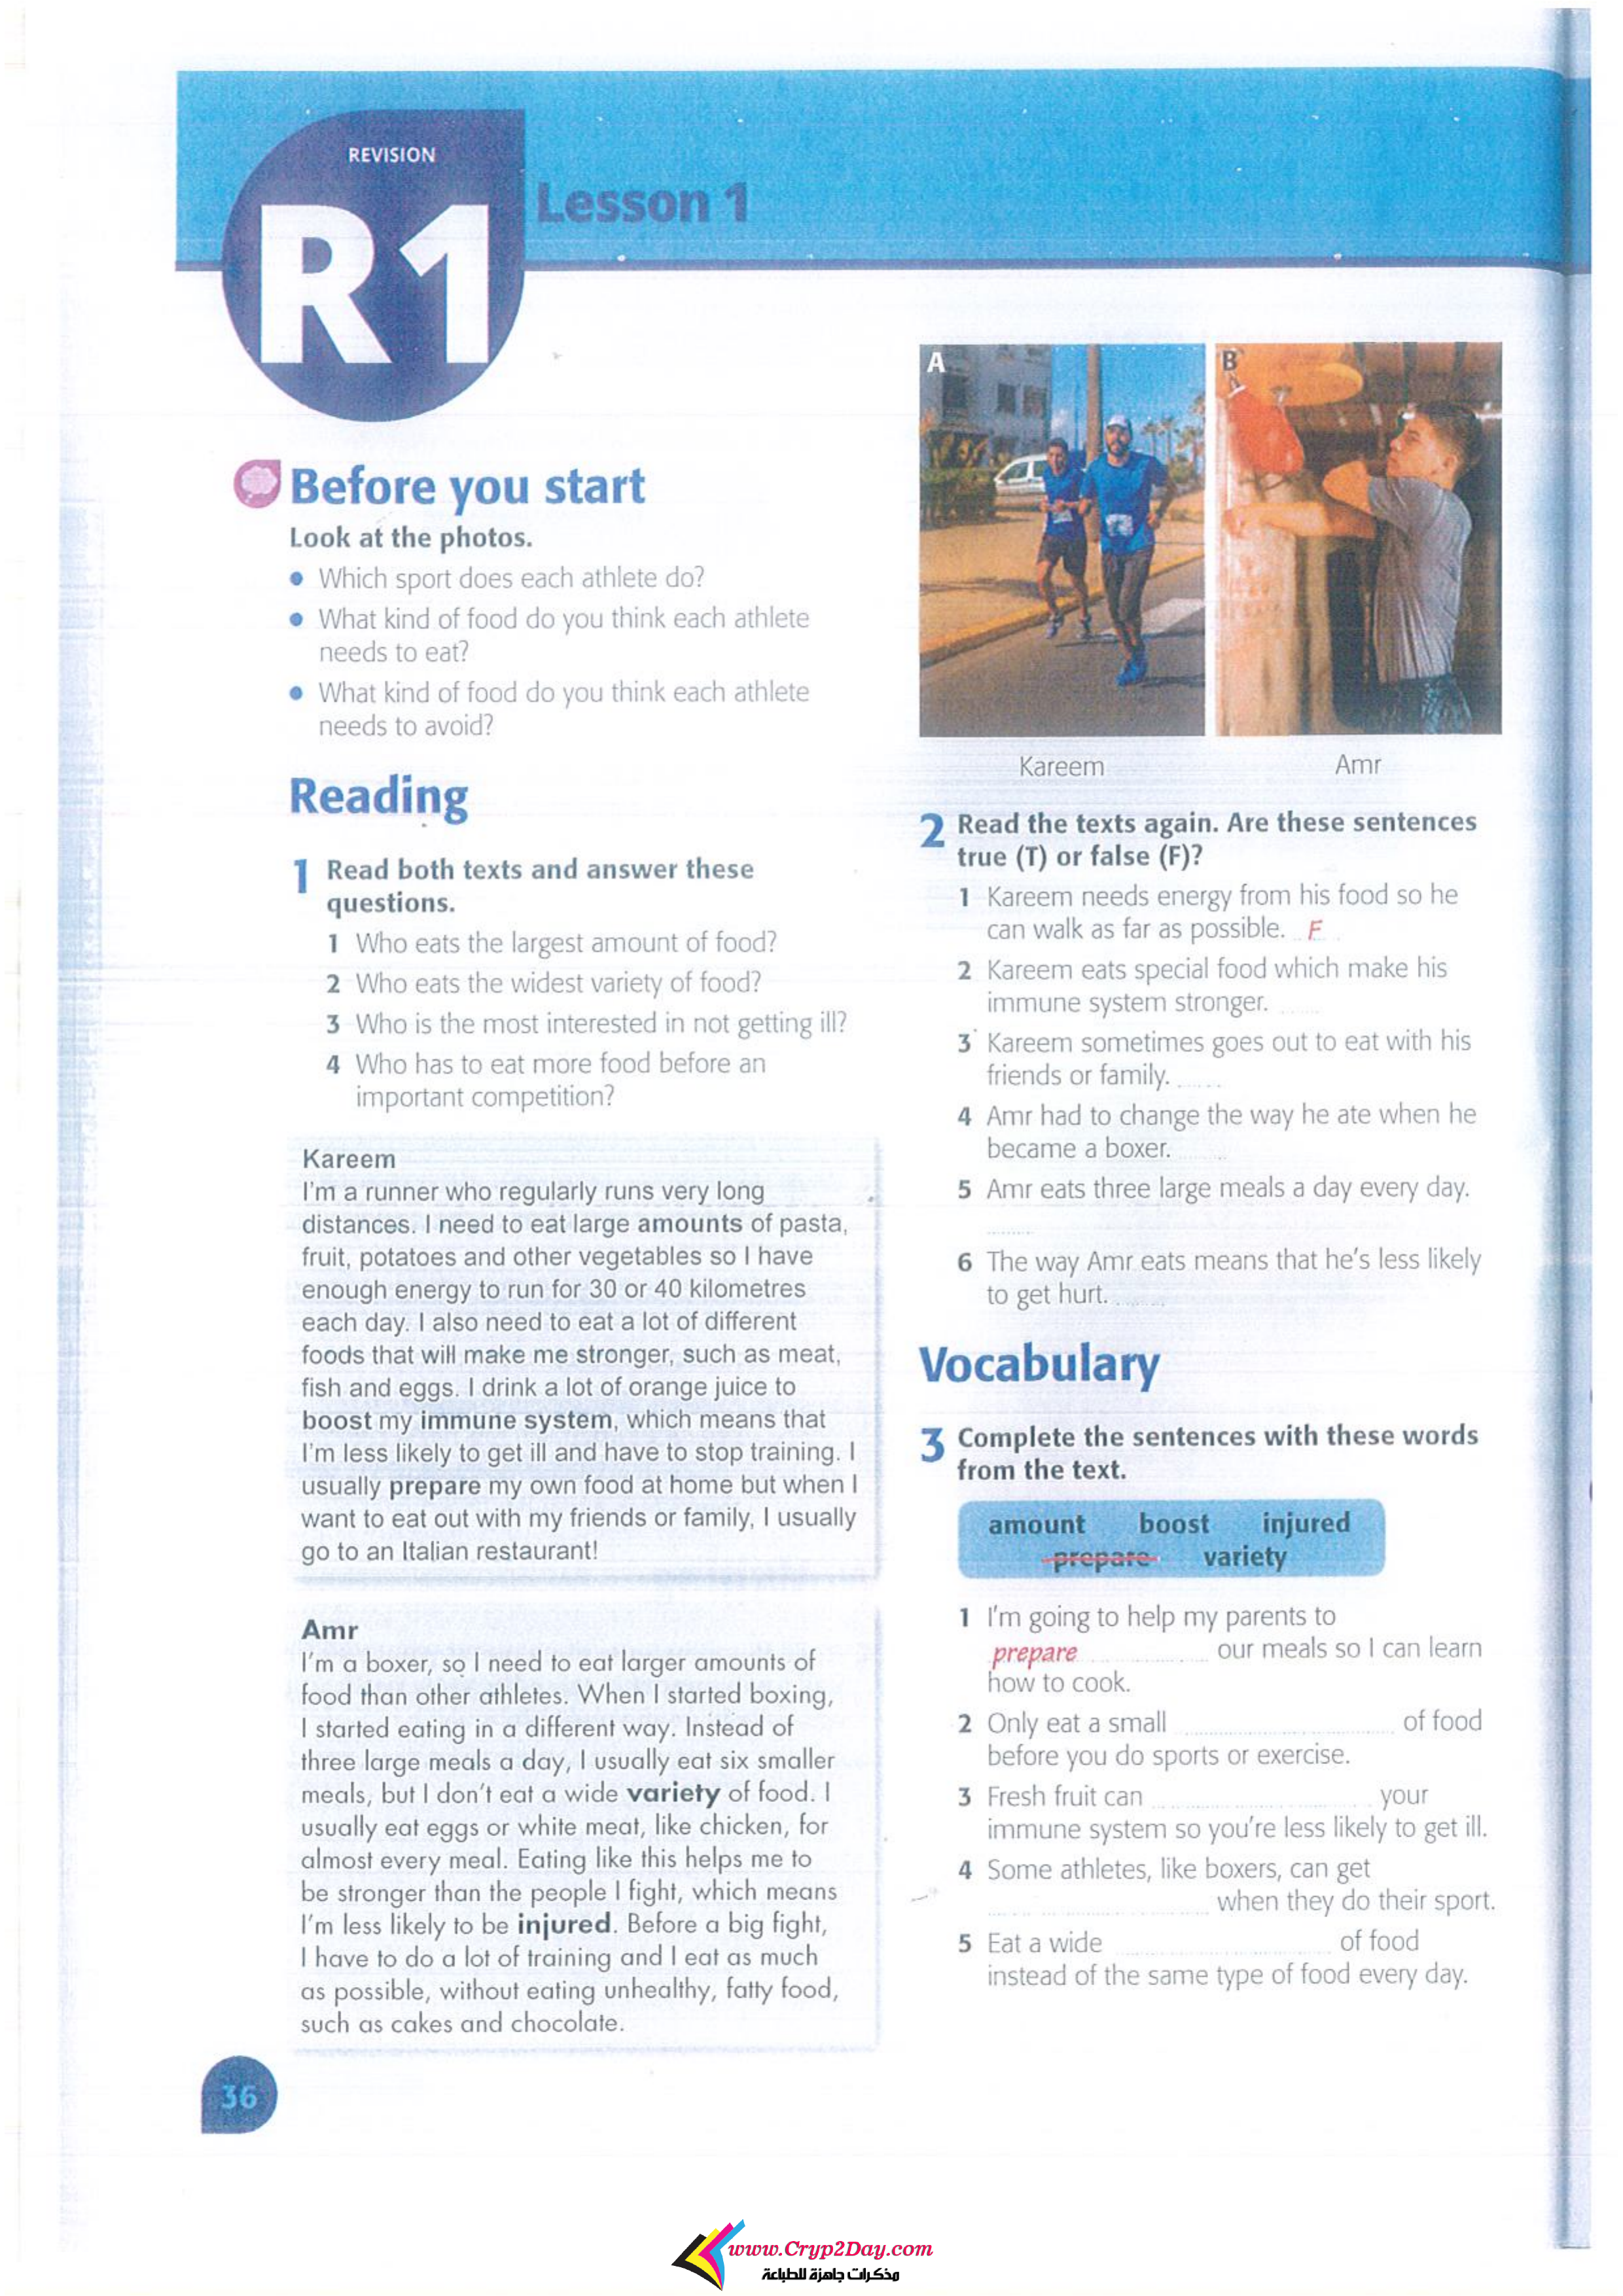 REVISION
R1
Lesson 1
Before you start
Look at the photos.
• Which sport does each athlete do?
• What kind of food do you think each athlete
needs to eat?
• What kind of food do you think each athlete
needs to avoid?
Reading
1 Read both texts and answer these
questions.
1 Who eats the largest amount of food?
2 Who eats the widest variety of food?
3 Who is the most interested in not getting ill?
4 Who has to eat more food before an
important competition?
Kareem
I'm a runner who regularly runs very long
distances. I need to eat large amounts of pasta,
fruit, potatoes and other vegetables so I have
enough energy to run for 30 or 40 kilometres
each day. I also need to eat a lot of different
foods that will make me stronger, such as meat,
fish and eggs. I drink a lot of orange juice to
boost my immune system, which means that
I'm less likely to get ill and have to stop training. I
usually prepare my own food at home but when I
want to eat out with my friends or family, I usually
go to an Italian restaurant!
Amr
I'm a boxer, so I need to eat larger amounts of
food than other athletes. When I started boxing,
I started eating in a different way. Instead of
three large meals a day, I usually eat six smaller
meals, but I don't eat a wide variety of food. I
usually eat eggs or white meat, like chicken, for
almost every meal. Eating like this helps me to
be stronger than the people I fight, which means
I'm less likely to be injured. Before a big fight,
I have to do a lot of training and I eat as much
as possible, without eating unhealthy, fatty food,
such as cakes and chocolate.
A
B
Kareem
Amr
2 Read the texts again. Are these sentences
true (T) or false (F)?
1 Kareem needs energy from his food so he
can walk as far as possible. F
2 Kareem eats special food which make his
immune system stronger. ......
3 Kareem sometimes goes out to eat with his
friends or family. ......
4 Amr had to change the way he ate when he
became a boxer. ......
5 Amr eats three large meals a day every day.
......
6 The way Amr eats means that he's less likely
to get hurt. ......
Vocabulary
3 Complete the sentences with these words
from the text.
amount boost injured
prepare variety
1 I'm going to help my parents to
prepare ............ our meals so I can learn
how to cook.
2 Only eat a small ............ of food
before you do sports or exercise.
3 Fresh fruit can ............ your
immune system so you're less likely to get ill.
4 Some athletes, like boxers, can get
............ when they do their sport.
5 Eat a wide ............ of food
instead of the same type of food every day.
36
www.Cryp2Day.com
مذكرات جاهزة للطباعة